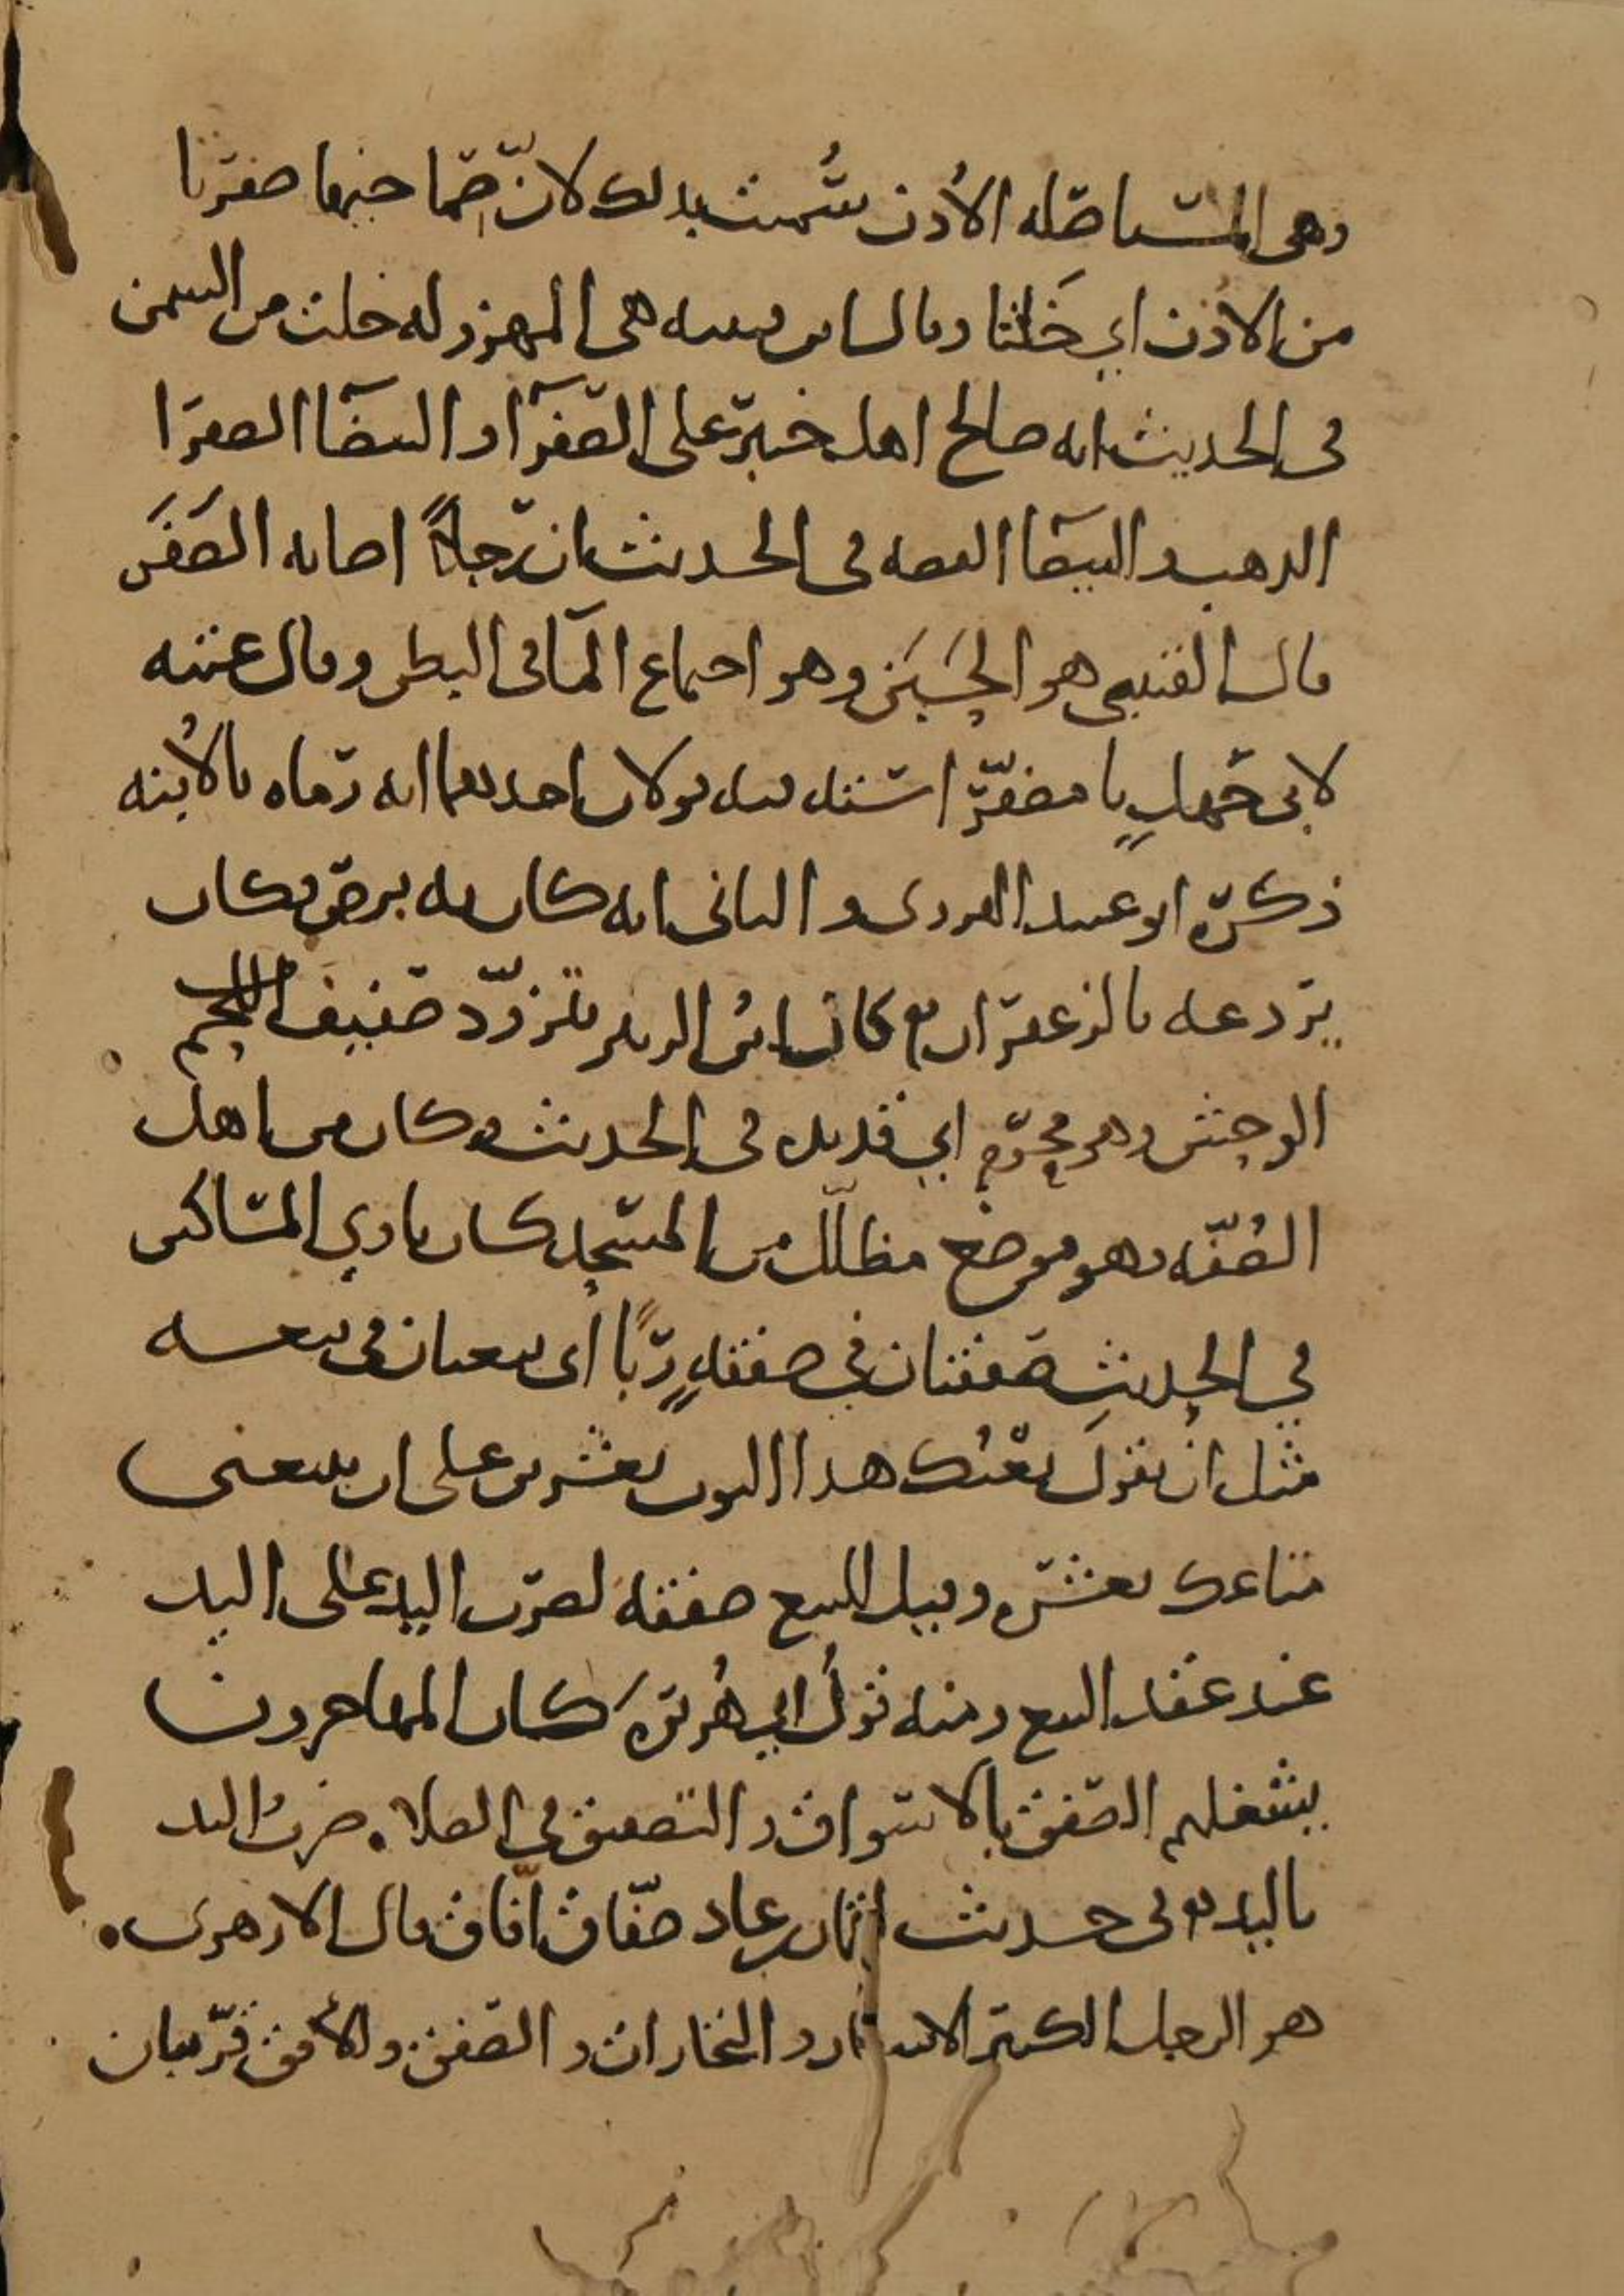 وهي المستاصله الاذن سُميت بذلك لانّ صِماخيها صفرتا
من الاذن اي خَلَتا وقال ابن قتيبه هي المهزوله خلت من السمن
في الحديث انه صالح اهل خيبر على الصفرآ والبيضآ الصفرا
الذهب والبيضآ الفضه في الحديث ان رجلاً اصابه الصَفَر
قال القتيبي هو الحَبَن وهو اجتماع المآ في البطن وقال عتبه
لابي جهلٍ يا مصفّر استه فيه قولان احدهما انه رماه بالاُبنه
ذكره ابو عبيد الهروي والثاني انه كان به برص فكان
يردعه بالزعفران كان ابنُ الزبير يتزوّد صفيف اللحم
الوحش وهو محرم اي قديده في الحديث وكان من اهل
الصُفّه وهو موضع مظلّل من المسجد كان ياوي المساكين
في الحديثِ صفقتان في صفقهٍ رِبًا اي بيعتان في بيعه
مثل ان يقولَ بعْتُك هذا الثوب بعشرين على ان تبيعني
متاعك بعشره وقيل للبيع صفقه لضرب اليد على اليد
عند عقد البيع ومنه قولُ ابي هُريرهَ كان المهاجرون
يشغلهم الصفق بالاسواق والتصفيق في الصلاه ضربُ اليد
باليد وفي حديث لقمان بن عاد صفّاق افّاق قال الازهري
هو الرجل الكثير الاسفار والتجارات والصفق والأفق قريبان